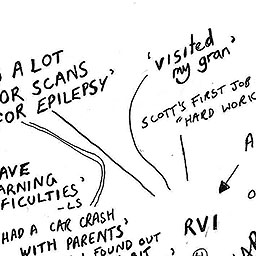 A LOT
OR SCANS
FOR EPILEPSY'
'visited
my gran'
SCOTT'S FIRST JOB
"HARD WORK
AVE
ARNING
FICULTIES'
-LS
HAD A CAR CRASH
WITH PARENTS'
FOUND OUT
RVI
A